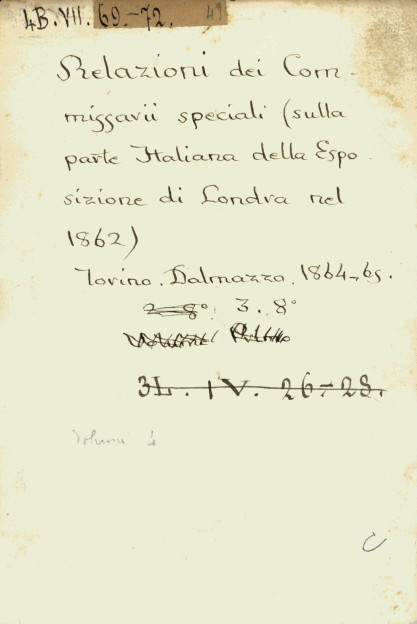 4B.VII. 69.-72. 49
Relazioni dei Com-
missarii speciali (sulla
parte Italiana della Espo-
sizione di Londra nel
1862)
Torino. Dalmazzo. 1864-65.
2 8° 3. 8°
Volume Primo
3L. IV. 26-28.
Volumi 4
C